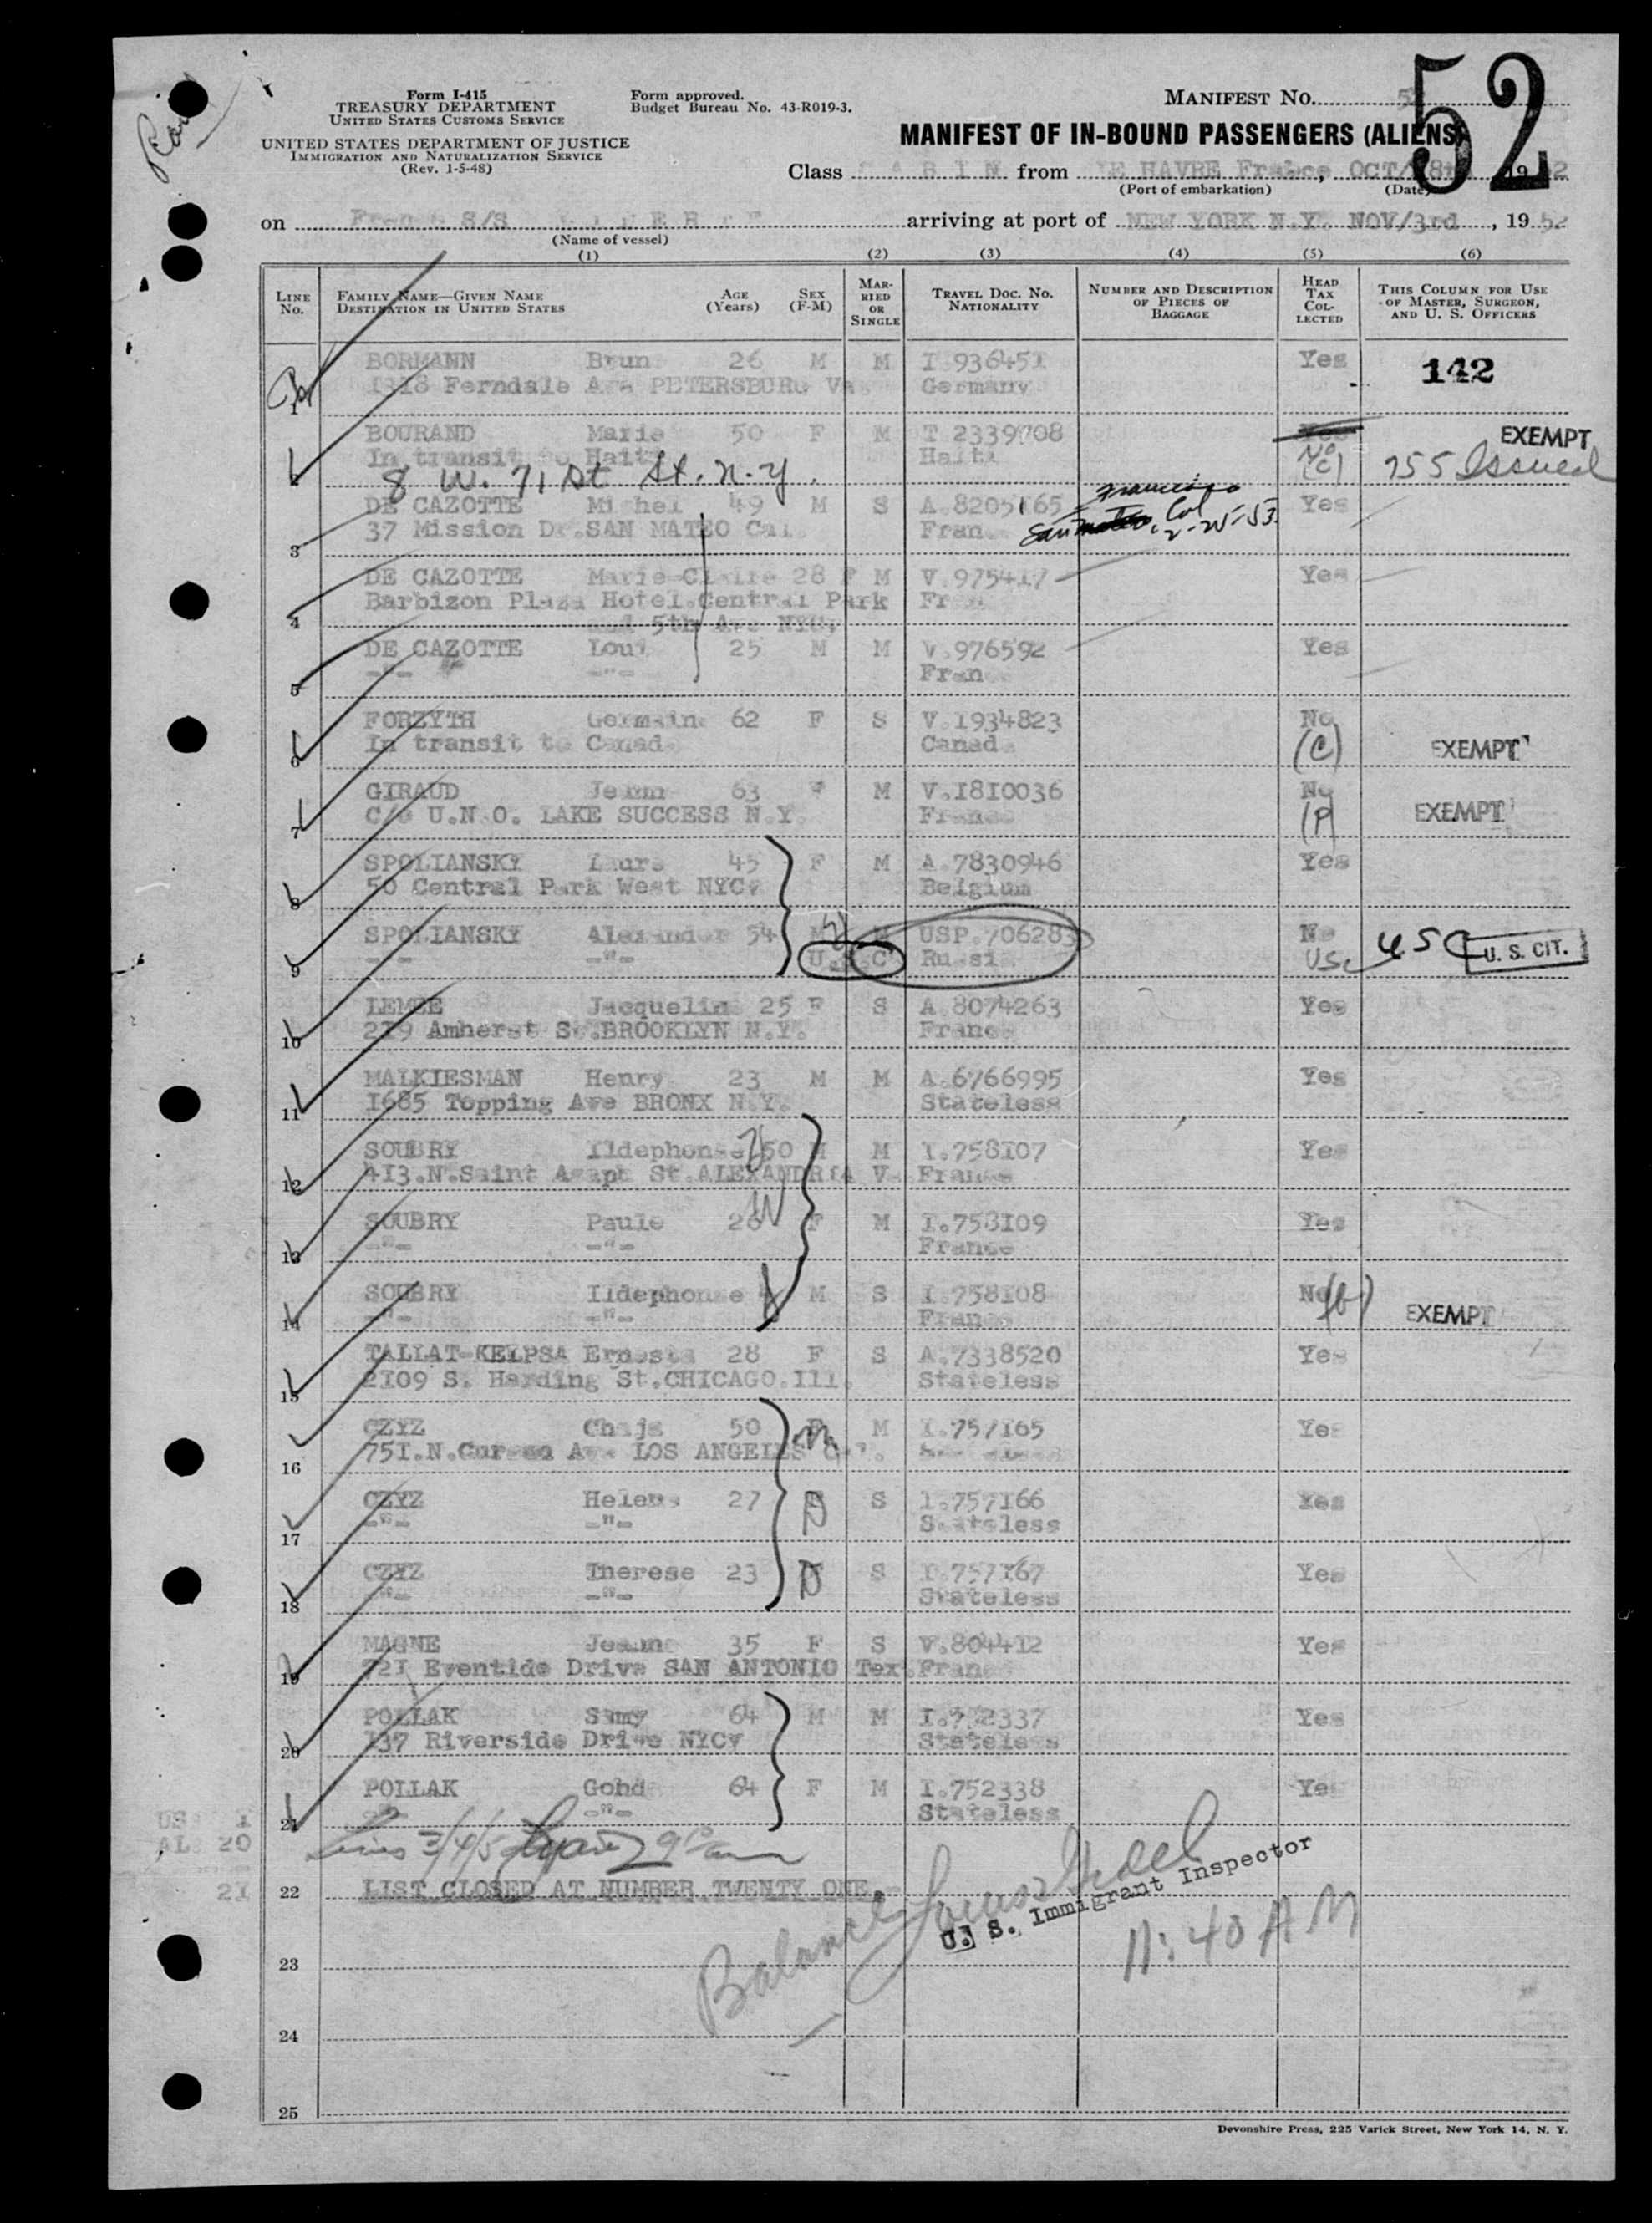 52
Form I-415
TREASURY DEPARTMENT
UNITED STATES CUSTOMS SERVICE
UNITED STATES DEPARTMENT OF JUSTICE
IMMIGRATION AND NATURALIZATION SERVICE
(Rev. 1-5-48)
Form approved.
Budget Bureau No. 43-R019-3.
MANIFEST NO.
MANIFEST OF IN-BOUND PASSENGERS (ALIENS)
Class CABIN from LE HAVRE France, OCT/ 19 52
(Port of embarkation) (Date)
on French S/S LIBERTE arriving at port of NEW YORK N.Y. NOV/3rd, 19 52
(Name of vessel)
(1) (2) (3) (4) (5) (6)
LINE No. FAMILY NAME—GIVEN NAME DESTINATION IN UNITED STATES AGE (Years) SEX (F-M) MARRIED OR SINGLE TRAVEL DOC. NO. NATIONALITY NUMBER AND DESCRIPTION OF PIECES OF BAGGAGE HEAD TAX COLLECTED THIS COLUMN FOR USE OF MASTER, SURGEON, AND U. S. OFFICERS
BORMANN 26 M M I 936451 Yes 142
1 Ferndale Ave PETERSBURG Va Germany
BOURAND Marie 50 F M T 2339708 Yes EXEMPT
2 In transit to Haiti Haiti No (C) 755 Issued
8 W. 71 st St. N.Y.
DE CAZOTTE Michel 49 M S A.8205165 San Francisco, Cal 2-25-53 Yes
3 37 Mission Dr.SAN MATEO Cal. France
DE CAZOTTE Marie-Claire 28 F M V.975417 Yes
4 Barbizon Plaza Hotel.Central Park France
and 5th Ave NYC.
DE CAZOTTE Louis 25 M M V.976592 Yes
5 -"- -"- France
FORZYTH Germaine 62 F S V.1934823 No
6 In transit to Canada Canada (C) EXEMPT
GIRAUD Jeanne 63 F M V.1810036 No
7 C/O U.N.O. LAKE SUCCESS N.Y. France (P) EXEMPT
SPOLIANSKY Laura 45 F M A.7830946 Yes
8 50 Central Park West NYC. Belgium
SPOLIANSKY Alexander 54 M M USP.706283 No USC U. S. CIT.
9 -"- -"- U.S.C Russia USC
LEMEE Jacqueline 25 F S A.8074263 Yes
10 219 Amherst St.BROOKLYN N.Y. France
MALKIESMAN Henry 23 M M A.6766995 Yes
11 1685 Topping Ave BRONX N.Y. Stateless
SOUBRY Ildephonse 50 M M I.758107 Yes
12 413.N.Saint Asaph St.ALEXANDRIA Va France
SOUBRY Paule 26 F M I.758109 Yes
13 -"- -"- France
SOUBRY Ildephonse M S I.758108 No (b)
14 -"- -"- France EXEMPT
TALLAT-KELPSA Ernesta 28 F S A.7338520 Yes
15 2109 S. Harding St.CHICAGO.Ill. Stateless
CZYZ Chaja 50 F M I.757165 Yes
16 751.N. Ave LOS ANGELES Cal. Stateless
CZYZ Helena 27 F S I.757166 Yes
17 -"- -"- Stateless
CZYZ Therese 23 F S I.757167 Yes
18 -"- -"- Stateless
MAGNE Jeanne 35 F S V.804412 Yes
19 721 Eventide Drive SAN ANTONIO Tex.France
POLLAK Samy 64 M M I.752337 Yes
20 137 Riverside Drive NYC. Stateless
POLLAK 64 F M I.752338 Yes
21 -"- -"- Stateless
US: 1
AL: 20
21
Lines 3/4/5
22 LIST CLOSED AT NUMBER TWENTY ONE.
Balance
U. S. Immigrant Inspector
11:40 AM
23
24
25
Devonshire Press, 225 Varick Street, New York 14, N. Y.